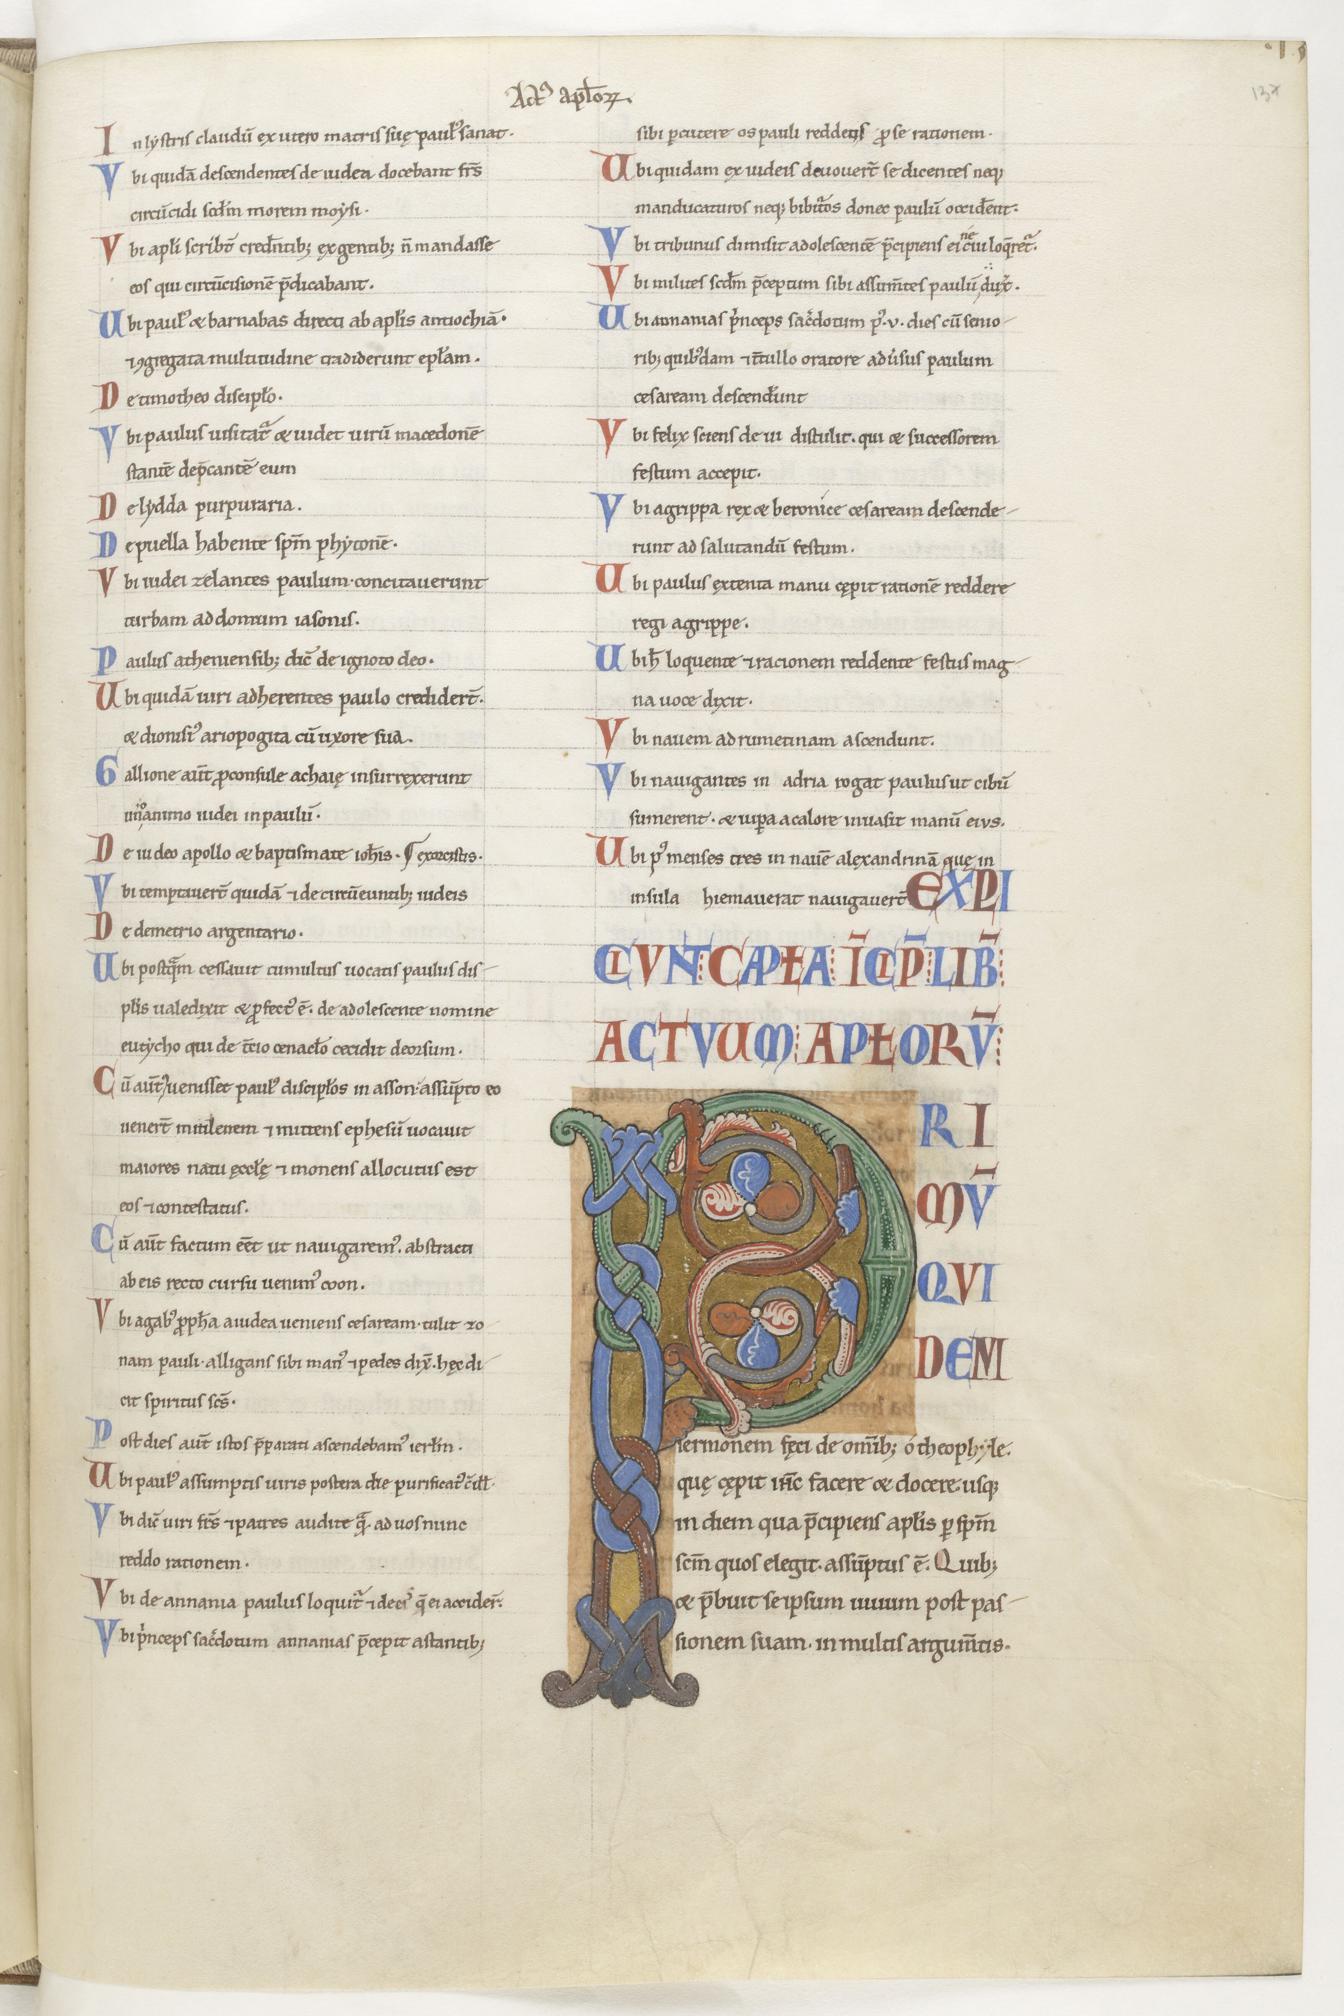 Act᷒ aploꝝ.
In lẏstris claudū ex utero matris suę paul᷒ sanat.
Vbi quidā descendentes de iudea docebant frs̄
circūcidi scdm̄ morem moẏsi.
Vbi apli scribt̄ credn̄tib; ex gentib; n̄ mandasse
eos qui circūcisionē p̄dicabant.
Ubi paul᷒ & barnabas directi ab aplis antiochiā.
⁊ ꝯgregata multitudine tradiderunt eplam.
De timotheo disciplo.
Vbi paulus uisitat̄ & uidet uirū macedonē
stantē dep̄cantē eum
De lẏdda purpuraria.
De puella habente spm̄ phẏtonē.
Vbi iudei zelantes paulum concitauerunt
turbam ad domum iasonis.
Paulus atheniensib; dic̄ de ignoto deo.
Ubi quidā uiri adherentes paulo credidert̄.
& dionisi᷒ ariopogita cū uxore sua.
Gallione aūt ꝓconsule achaię insurrexerunt
unanimo iudei in paulū.
De iudeo apollo & baptismate ioh̄is. exorcistis.
Vbi temptauert̄ quidā ⁊ de circūeuntib; iudeis
De demetrio argentario.
Ubi postqᷓm cessauit tumultus uocatis paulus dis-
plis ualedixit & ꝓfect᷒ ē. de adolescente nomine
eutẏcho qui de t̄cio cenaclo cecidit deorsum.
Cū aūt uenisset paul᷒ disciplos in asson. assūpto eo
uenert̄ mitilenem ⁊ mittens ephesū uocauit
maiores natu ęcclę ⁊ monens allocutus est
eos ⁊ contestatus.
Cū aūt factum eēt ut nauigarem᷒. abstracti
ab eis recto cursu uenim᷒ coon.
Vbi agab᷒ ꝓph̄a a iudea ueniens cesaream. tulit zo
nam pauli. alligans sibi man᷒ ⁊ pedes dix̄. hęc di-
cit spiritus scs̄.
Post dies aūt istos p̄parati ascendebam᷒ ierl̄m.
Ubi paul᷒ assumptis uiris postera die purificat᷒ c̄ ill.
Vbi dic̄ uiri frs̄ ⁊ patres audite qᷓ ad uos nunc
reddo rationem.
Vbi de annania paulus loquit᷑ ⁊ de eis q̄ ei accider̄.
Vbi p᷒nceps sacdotum annanias p̄cepit astantib;
sibi ꝑcutere os pauli reddentis ꝓ se rationem.
Ubi quidam ex iudeis deuouert̄ se dicentes neq;
manducaturos neq; bibituros donec paulū occident.
Vbi tribunus dimisit adolescentē p̄cipiens ei ne cui loq̄ret᷑.
Vbi milites scdm̄ p̄ceptum sibi assum̄tes paulū dux̄.
Ubi annanias p᷒nceps sacdotum p᷒ .v. dies cū senio-
rib; quib᷒dam ⁊ t̄tullo oratore adūsus paulum
cesaream descendunt
Vbi felix sciens de ui distulit. qui & successorem
festum accepit.
Vbi agrippa rex & beronice cesaream descende-
runt ad salutandū festum.
Ubi paulus extenta manu cępit rationē reddere
regi agrippe.
Ubi h̄ loquente ⁊ racionem reddente festus mag-
na uoce dixit.
Vbi nauem adrumetinam ascendunt.
Vbi nauigantes in adria rogat paulus ut cibū
sumerent. & uipa a calore inuasit manū eius.
Ubi p᷒ menses tres in nauē alexandrinā quę in
insula hiemauerat nauigauert̄ EXPI
CIVNT CAPŁA ĪCIP̄ LIB̄
ACTVUM APŁORV̄
P RI
MV̄
QVI
DEM
sermonem fęci de omīb; ó theophẏle.
quę cępit ih̄c facere & docere usq;
in diem qua p̄cipiens aplis ꝑ spm̄
scm̄ quos elegit. assūptus ē. Quib;
& p̄buit se ipsum uiuum post pas-
sionem suam. in multis argum̄tis.
137